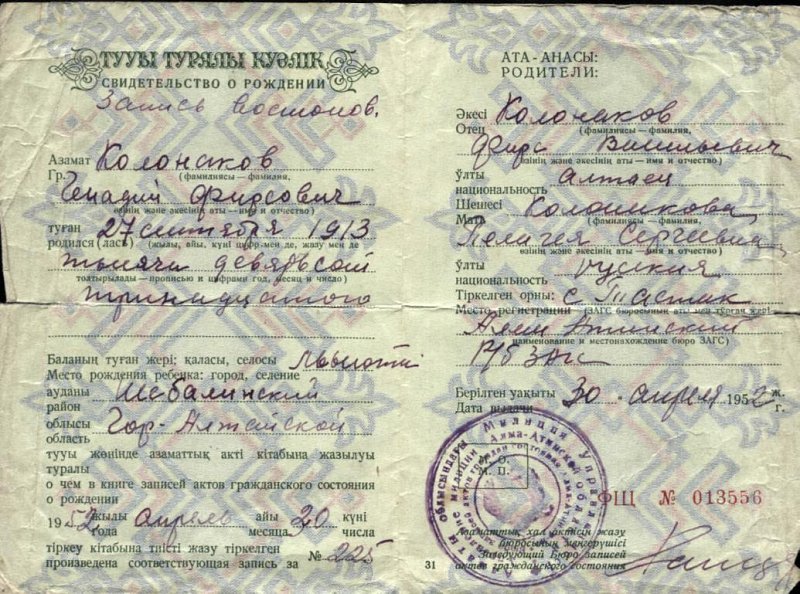 ТУУЫ ТУРАЛЫ КУӘЛІК
СВИДЕТЕЛЬСТВО О РОЖДЕНИИ
Запись востонов.
Азамат Колонаков
Гр. (фамилиясы — фамилия,
Генадий Фирсович
өзінің және әкесінің аты — имя и отчество)
туған 27 сентября 1913
родился (лась) (жылы, айы, күні цифрмен де, жазумен де
тысяча девятьсот
толтырылады — прописью и цифрами год, месяц и число)
тринадцатого
Баланың туған жері: қаласы, селосы
Место рождения ребенка: город, селение
ауданы Шебалинский
район
облысы Гор-Алтайской
область
тууы жөнінде азаматтық акті кітабына жазылуы
туралы
о чем в книге записей актов гражданского состояния
о рождении
1952 жылы апрель айы 20 күні
года месяца числа
тіркеу кітабына тиісті жазу тіркелген
произведена соответствующая запись за № 225
АТА-АНАСЫ:
РОДИТЕЛИ:
Әкесі Колонаков
Отец (фамилиясы — фамилия,
Фирс Васильевич
өзінің және әкесінің аты — имя и отчество)
ұлты алтаец
национальность
Шешесі Колонакова
Мать (фамилиясы — фамилия,
Пелагия Сергеевна
өзінің және әкесінің аты — имя и отчество)
ұлты руския
национальность
Тіркелген орны: с Тастак
Место регистрации (ЗАГС бюросының аты мен тұрған жері
Алма Атинский
наименование и местонахождение бюро ЗАГС)
Р/б загс
Берілген уақыты 30 апреля 1952 ж.
Дата выдачи г.
М. О.
М. П.
ФЩ № 013556
Азаматтық хал актісін жазу
бюросының меңгерушісі
Заведующий Бюро записей
31 актов гражданского состояния